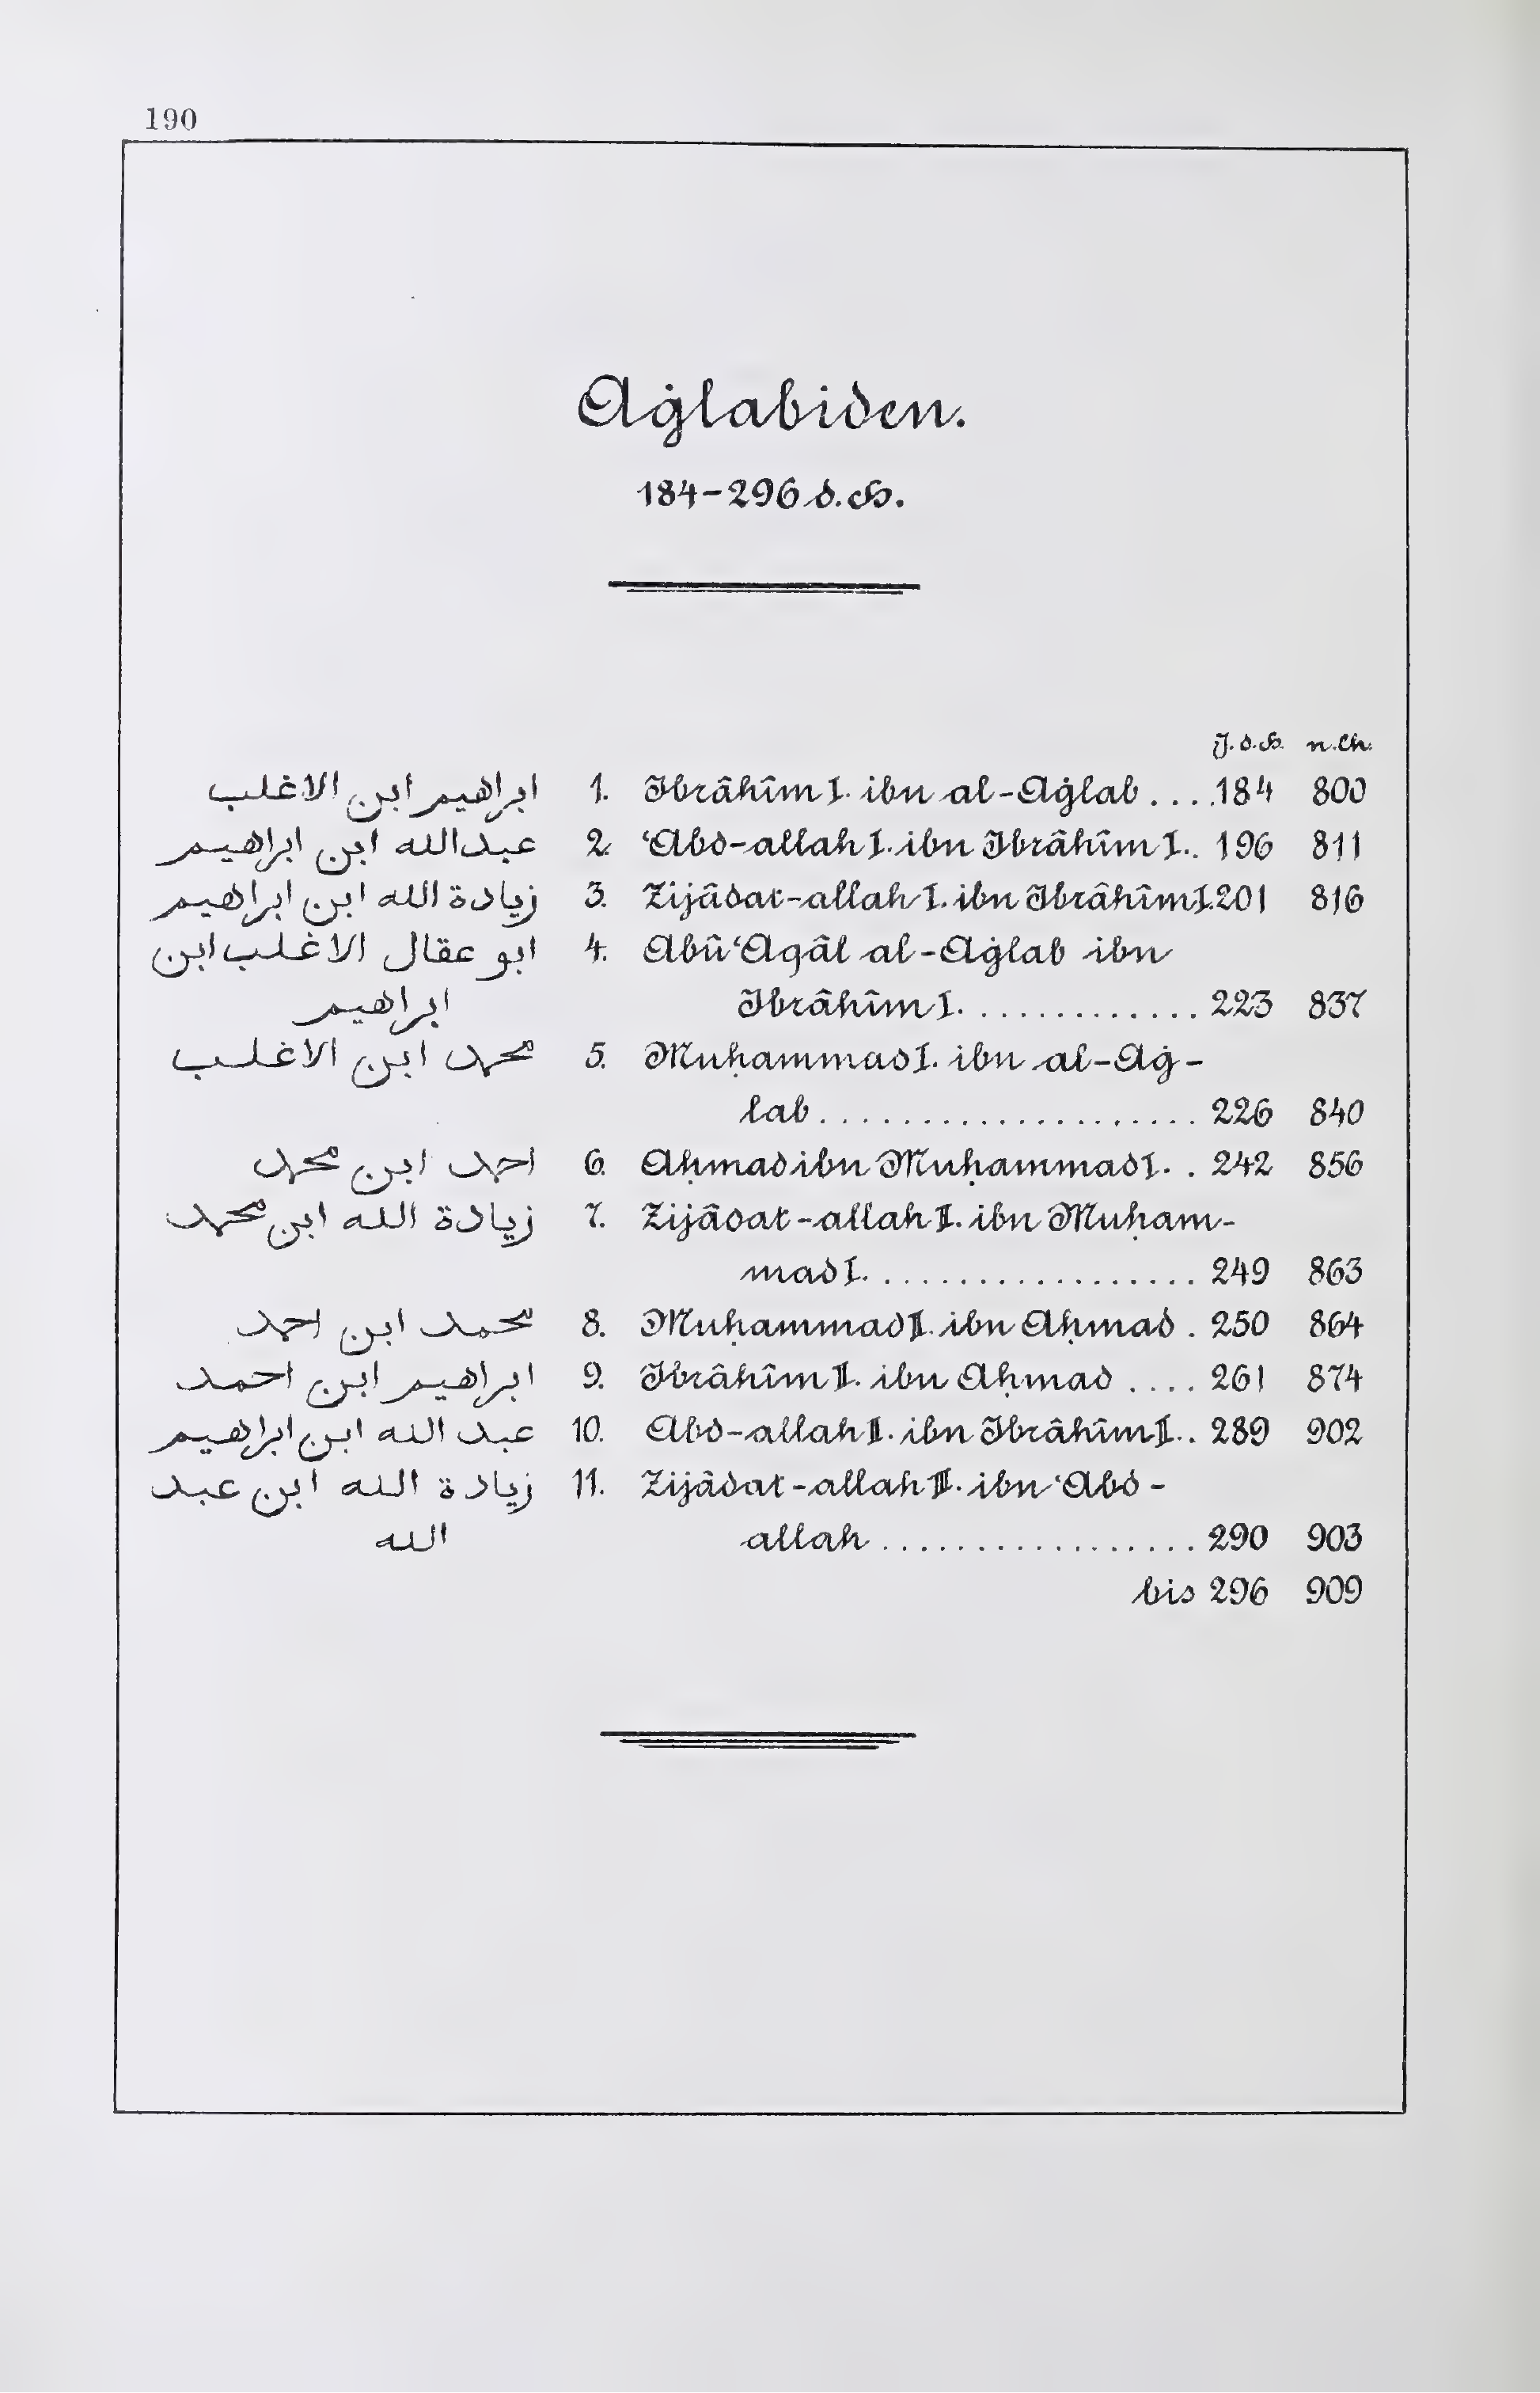 190
Aġlabiden.
184-296 d. H.
J. d. H. n. Ch.
ابراهيم ابن الاغلب 1. Ibrâhîm I. ibn al-Aġlab .... 184 800
عبدالله ابن ابراهيم 2. ‘Abd-allah I. ibn Ibrâhîm I.. 196 811
زيادة الله ابن ابراهيم 3. Zijâdat-allah I. ibn Ibrâhîm I. 201 816
ابو عقال الاغلب ابن 4. Abû ‘Aqâl al-Aġlab ibn
ابراهيم Ibrâhîm I. ............ 223 837
محمد ابن الاغلب 5. Muḥammad I. ibn al-Aġ-
lab .................... 226 840
احمد ابن محمد 6. Aḥmad ibn Muḥammad I. . 242 856
زيادة الله ابن محمد 7. Zijâdat-allah II. ibn Muḥam-
mad I. ................. 249 863
محمد ابن احمد 8. Muḥammad II. ibn Aḥmad . 250 864
ابراهيم ابن احمد 9. Ibrâhîm II. ibn Aḥmad .... 261 874
عبد الله ابن ابراهيم 10. Abd-allah II. ibn Ibrâhîm II.. 289 902
زيادة الله ابن عبد 11. Zijâdat-allah III. ibn ‘Abd-
الله allah ................. 290 903
bis 296 909